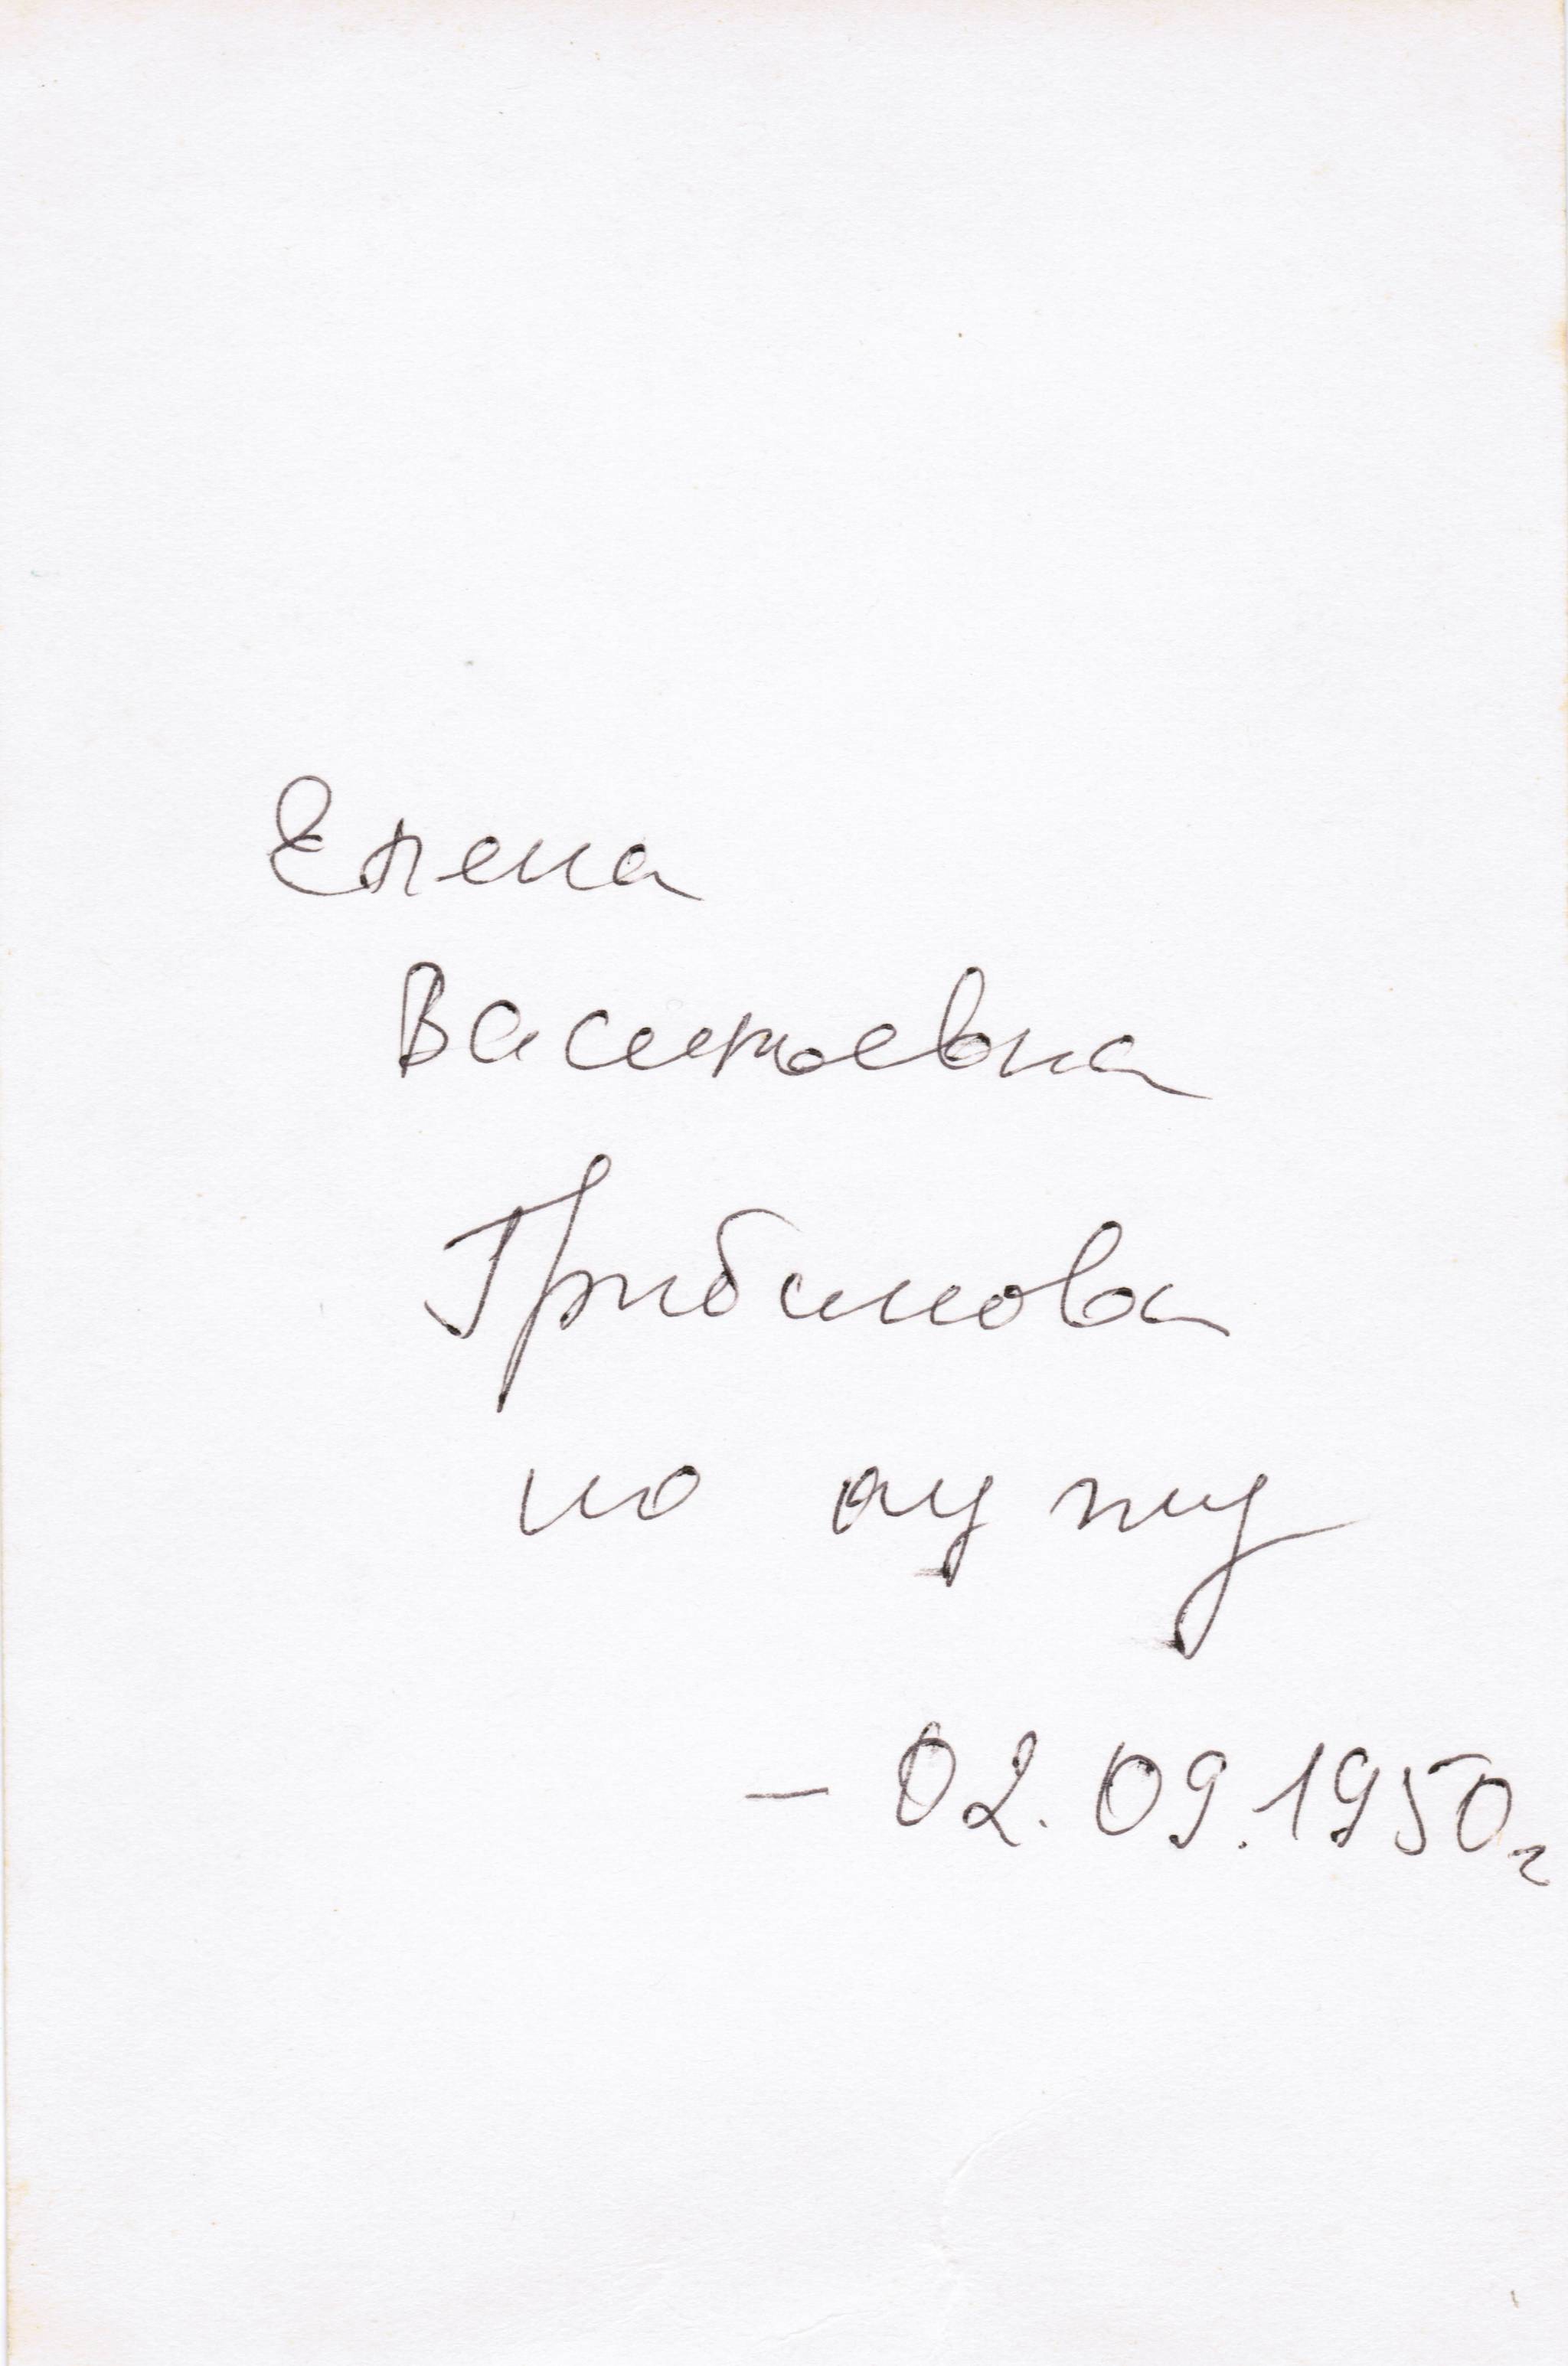 Елена
Васильевна
Грибанова
по мужу
- 02.09.1950г